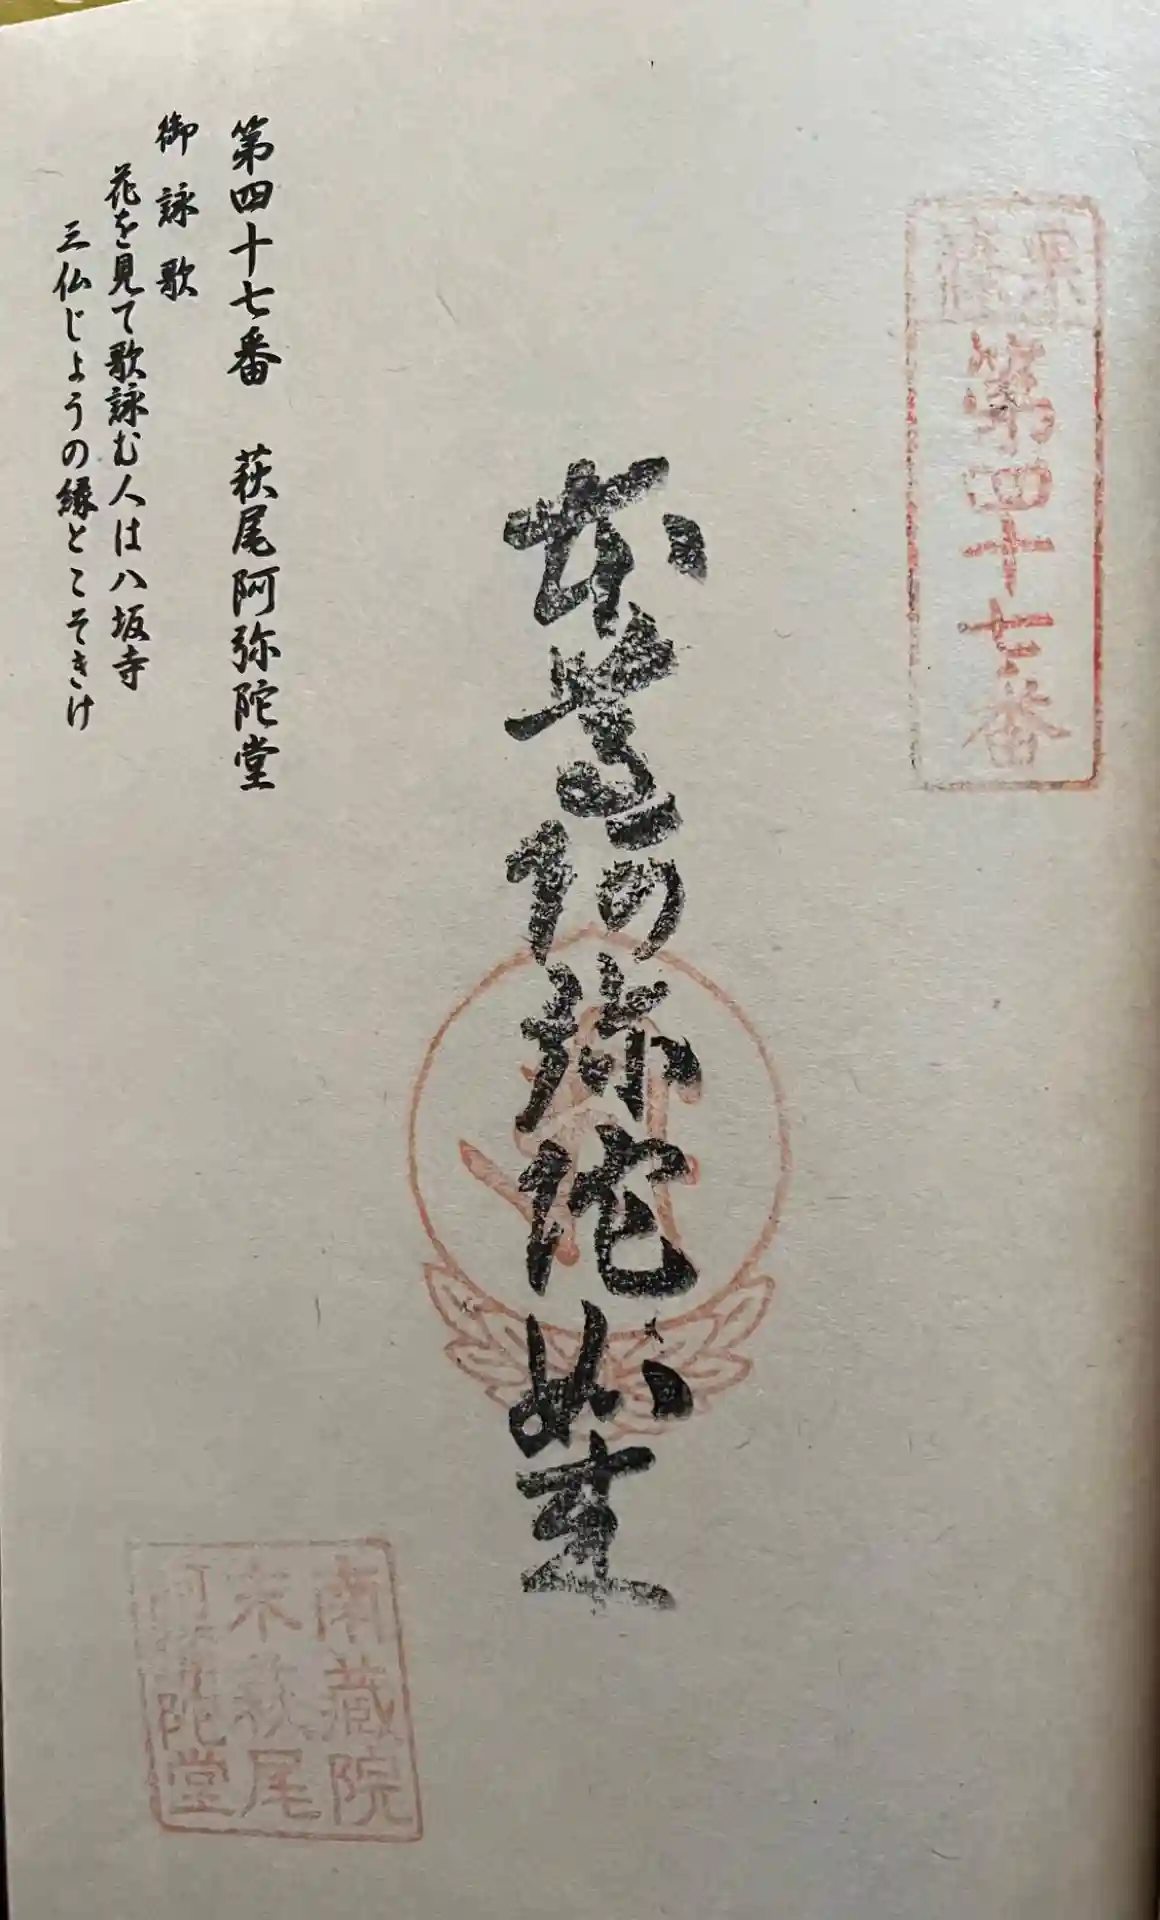 第四十七番
本尊阿弥陀如来
第四十七番　萩尾阿弥陀堂
御詠歌
花を見て歌詠む人は八坂寺
三仏じょうの縁とこそきけ
南藏院
末萩尾
阿弥陀堂